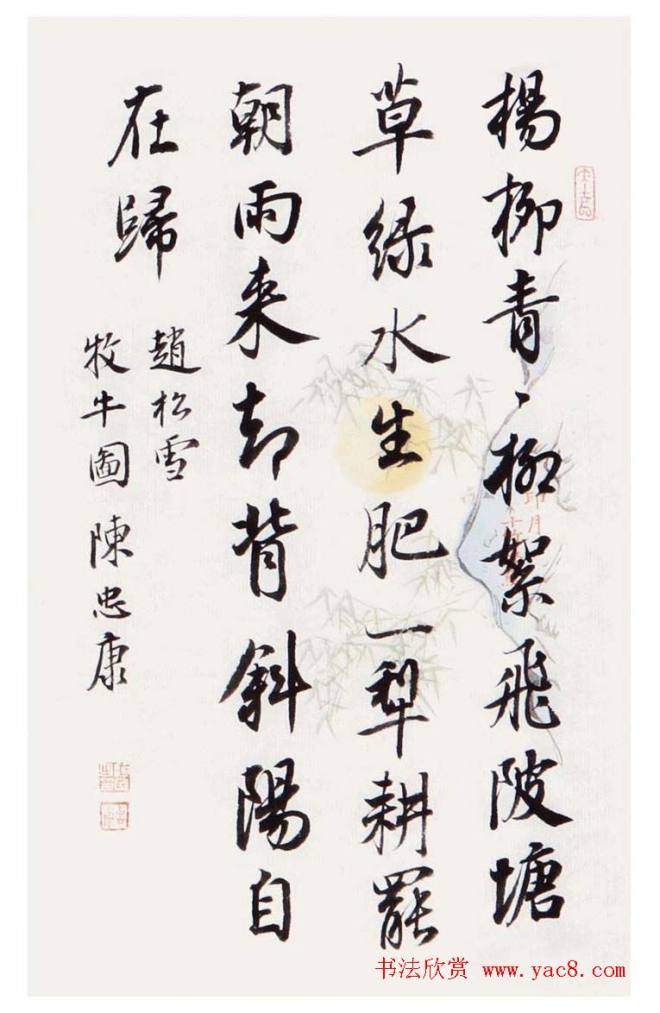 楊柳青丶柳絮飛陂塘
草緑水生肥一犁耕罷
朝雨来却背斜陽自
在歸
趙松雪
牧牛圖陳忠康
书法欣赏 www.yac8.com